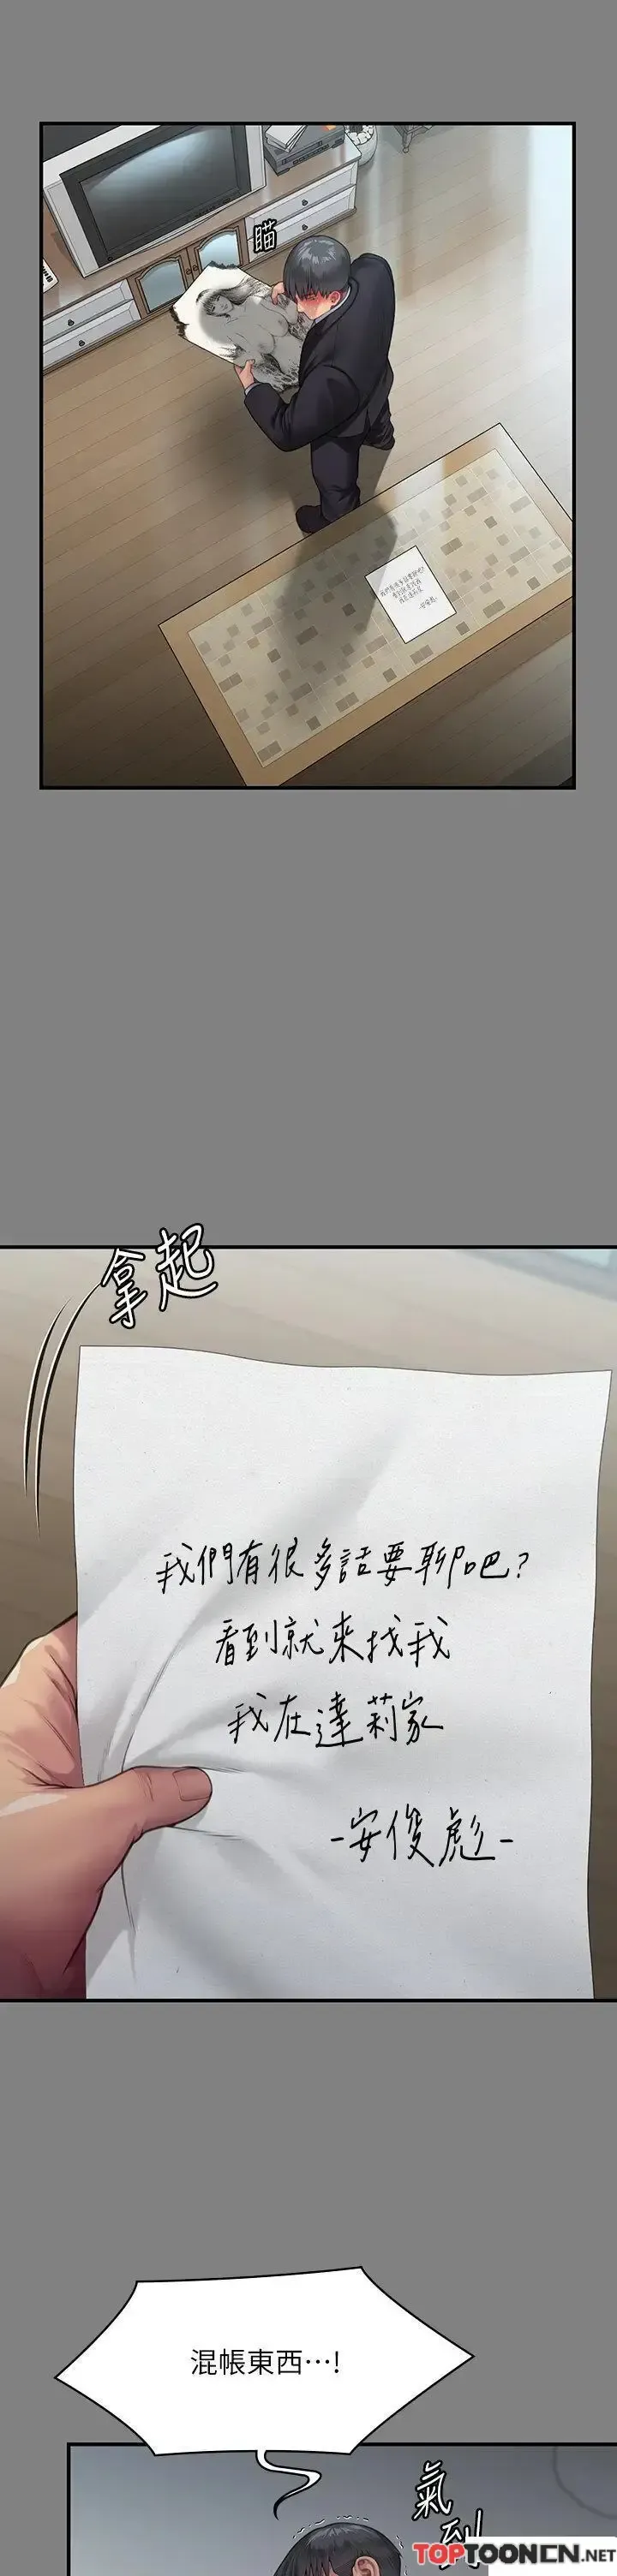 瞄
我們有很多話要聊吧?
看到就來找我
我在達莉家
-安俊彪-
拿起
我們有很多話要聊吧?
看到就來找我
我在達莉家
-安俊彪-
TOPTOONCN.NET
混帳東西…!
氣到
TOPTOONCN.NET